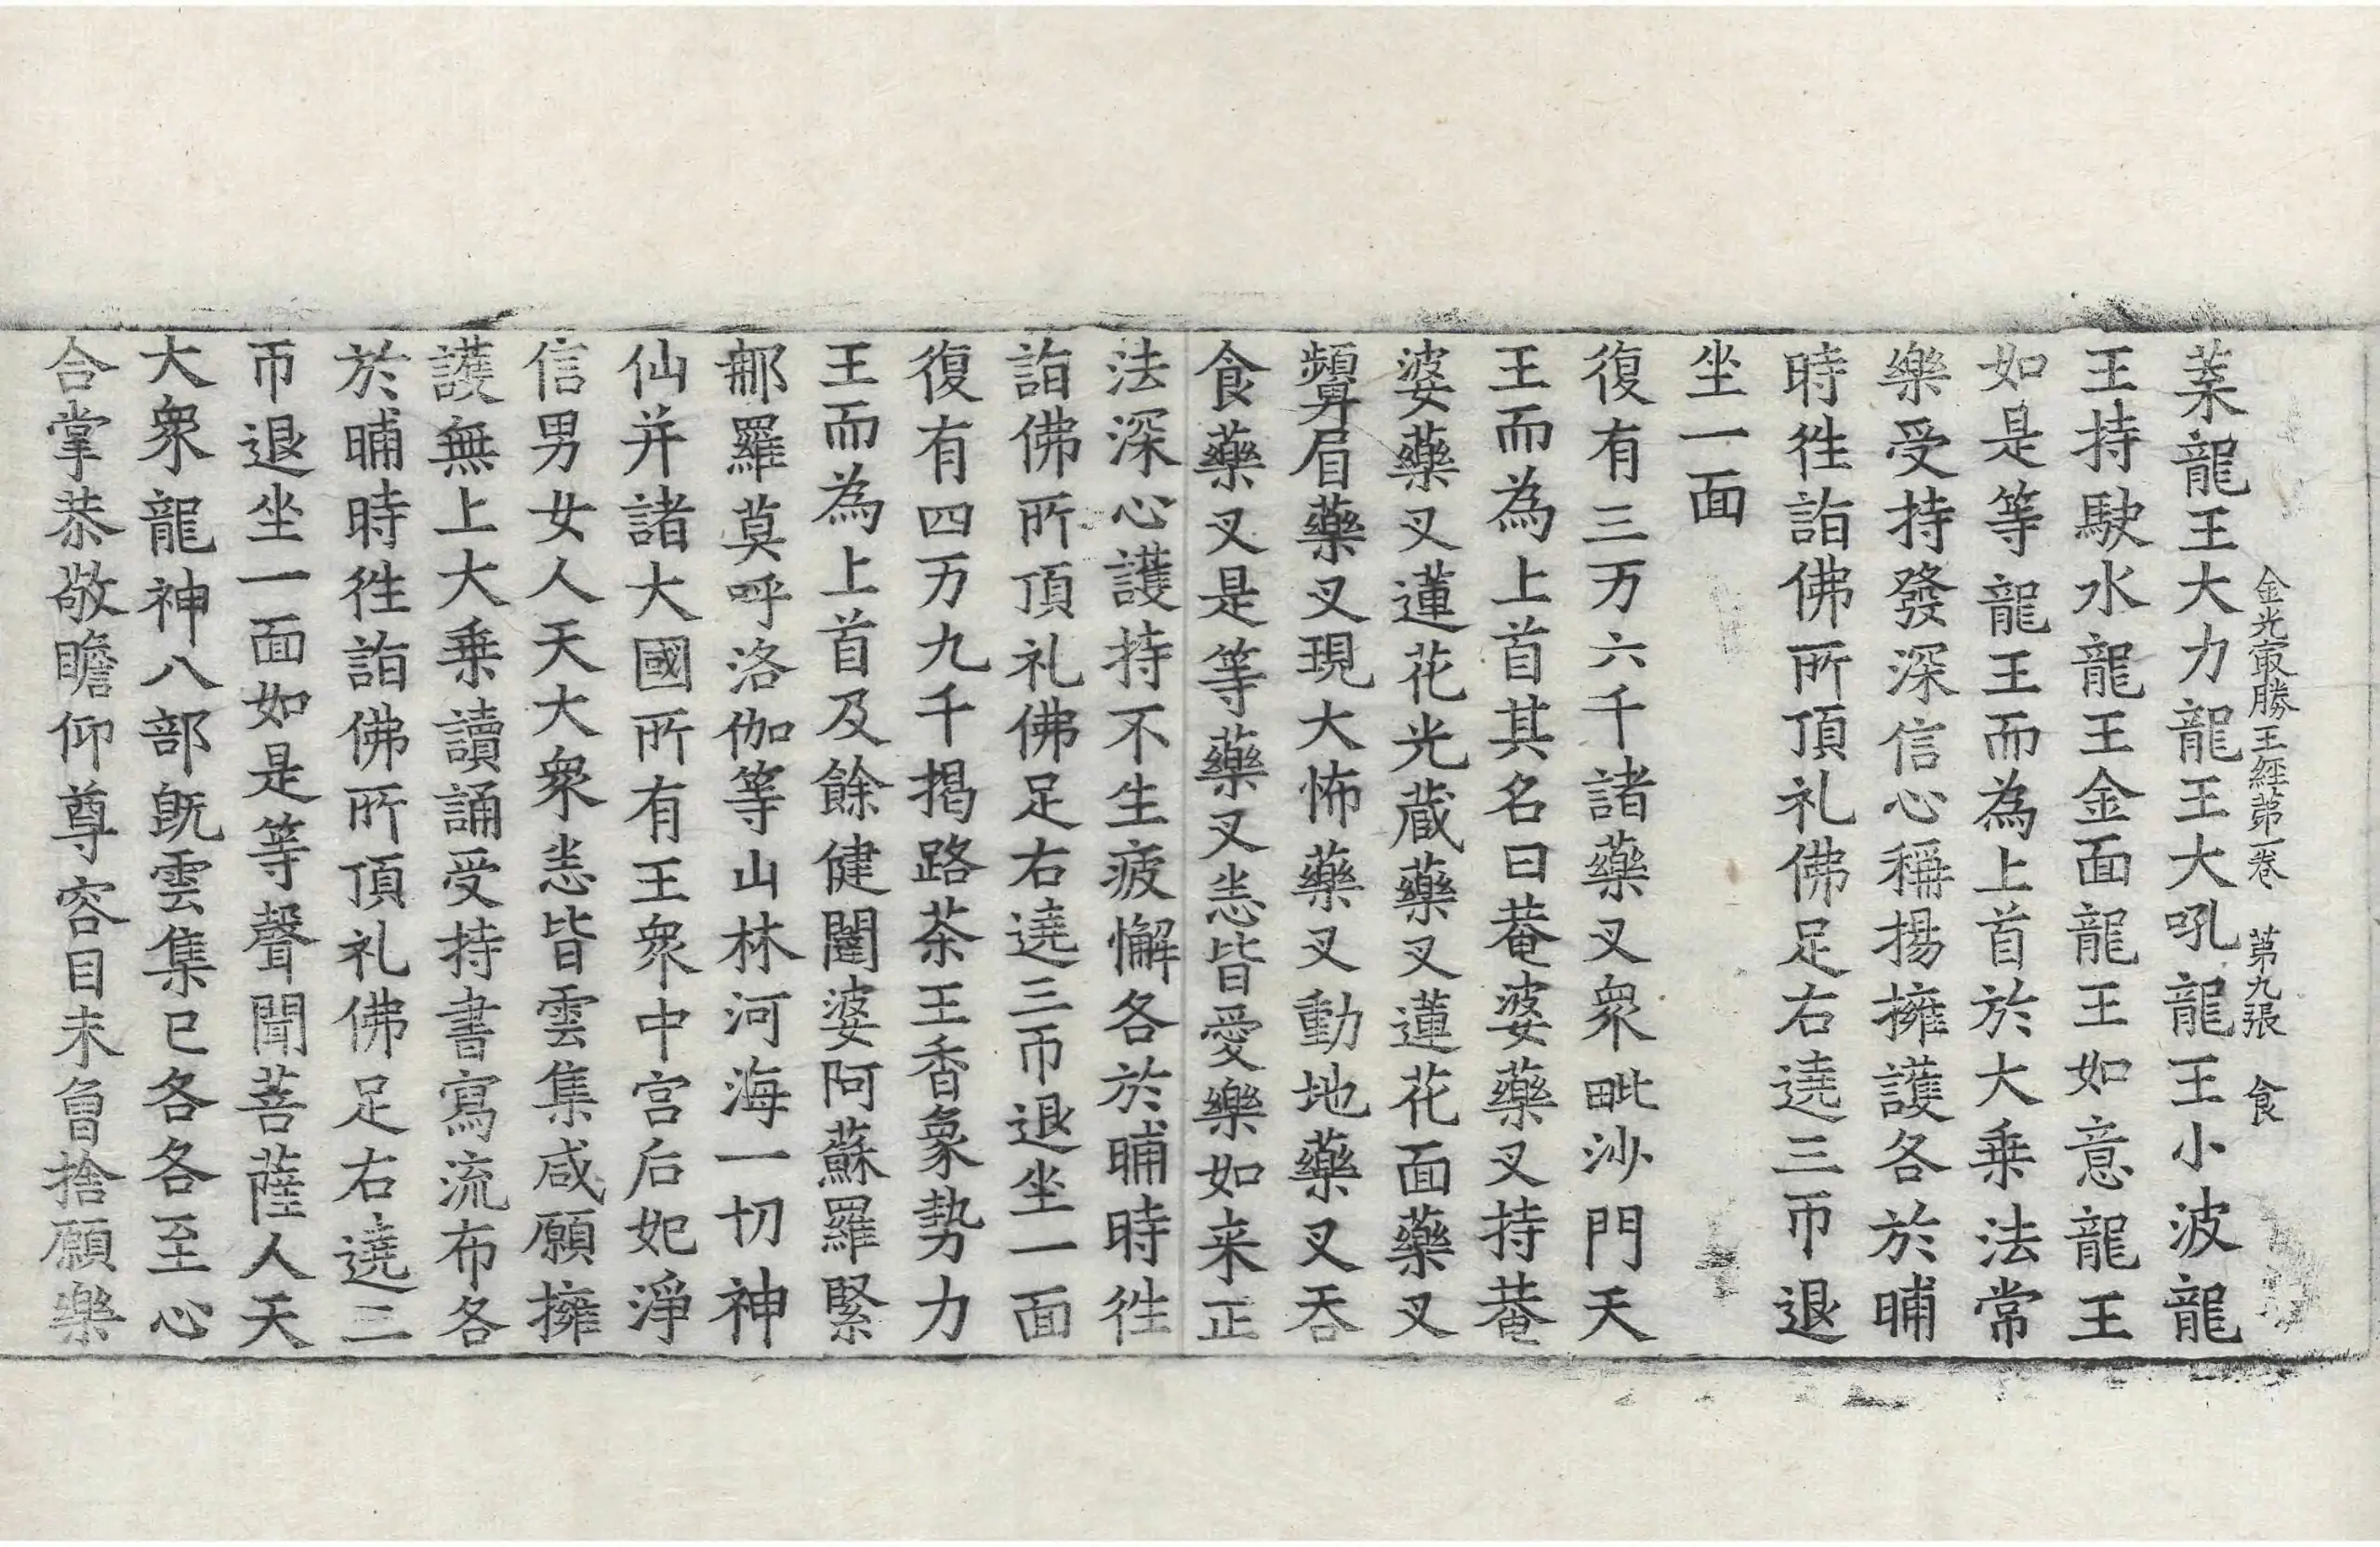 金光㝡勝王經第一卷 第九張 食
葉龍王大力龍王大吼龍王小波龍
王持駃水龍王金面龍王如意龍王
如是等龍王而為上首於大乗法常
樂受持發深信心稱揚擁護各於晡
時往詣佛所頂礼佛足右遶三帀退
坐一面
復有三万六千諸藥叉衆毗沙門天
王而為上首其名曰菴婆藥叉持菴
婆藥叉蓮花光藏藥叉蓮花面藥叉
顰眉藥叉現大怖藥叉動地藥叉吞
食藥叉是等藥叉悉皆愛樂如来正
法深心護持不生疲懈各於晡時往
詣佛所頂礼佛足右遶三帀退坐一面
復有四万九千揭路荼王香象勢力
王而為上首及餘健闥婆阿蘇羅緊
那羅莫呼洛伽等山林河海一切神
仙并諸大國所有王衆中宮后妃淨
信男女人天大衆悉皆雲集咸願擁
護無上大乗讀誦受持書寫流布各
於晡時往詣佛所頂礼佛足右遶三
帀退坐一面如是等聲聞菩薩人天
大衆龍神八部既雲集已各各至心
合掌恭敬瞻仰尊容目未曾捨願樂